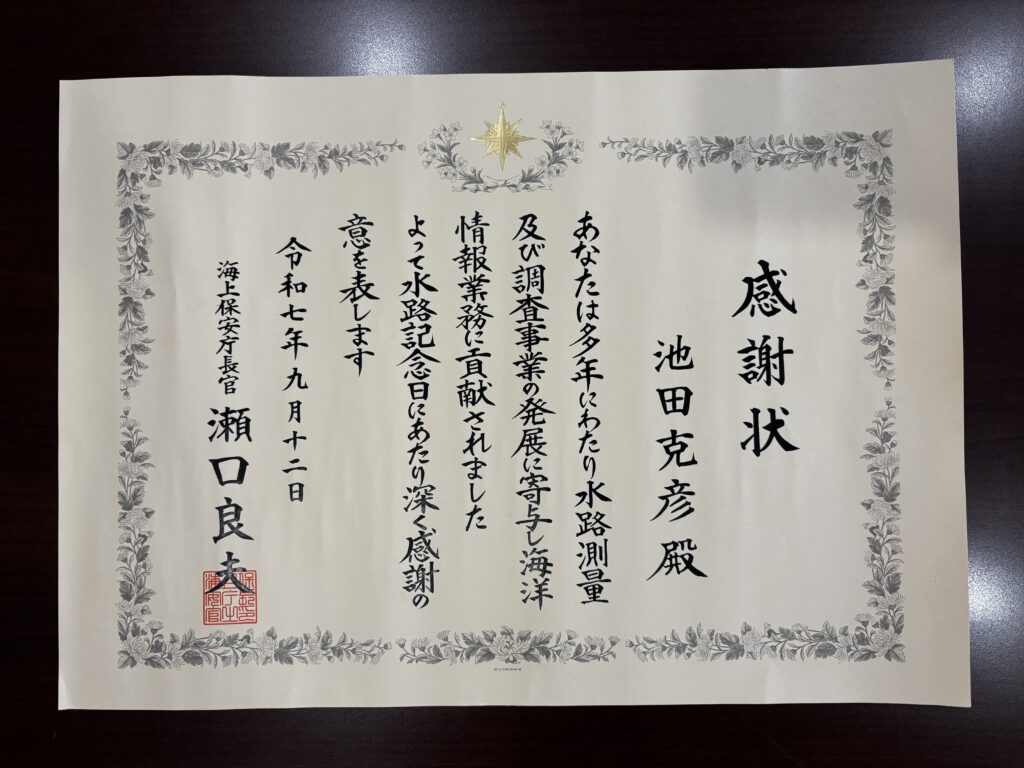 感謝状
池田克彦殿
あなたは多年にわたり水路測量
及び調査事業の発展に寄与し海洋
情報業務に貢献されました
よって水路記念日にあたり深く感謝の
意を表します
令和七年九月十二日
海上保安庁長官 瀬口良夫